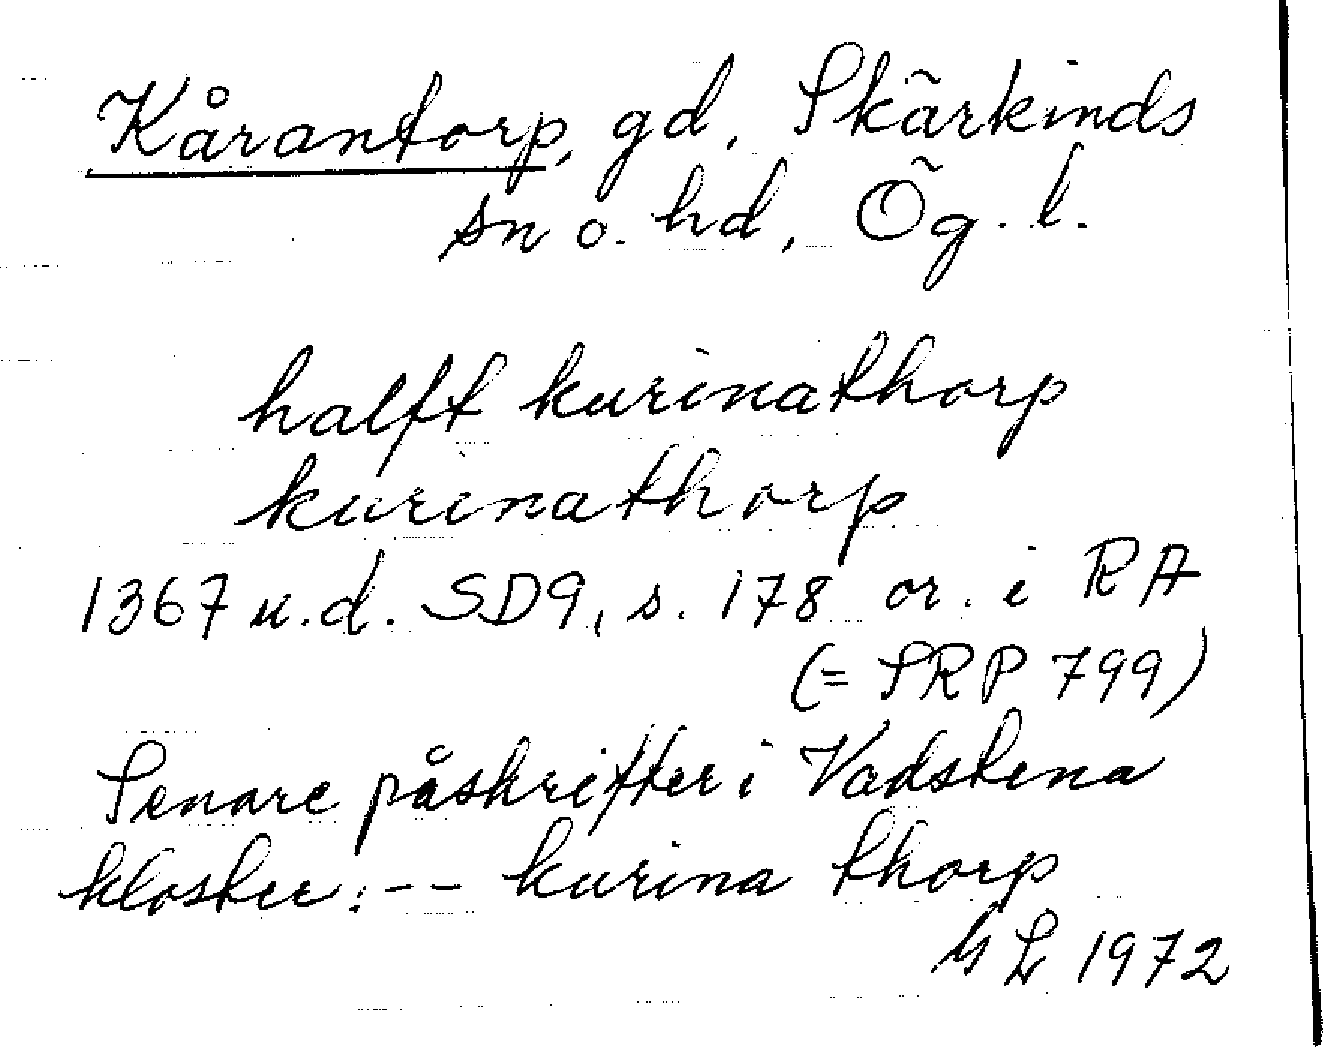 Kårantorp, gd, Skärkinds
sn o. hd, Ög. l.
halft kurinathorp
kurinathorp
1367 u.d. SD9, s. 178 or. i RA
(= SRP 799)
Senare påskrifter i Vadstena
kloster: -- kurina thorp
GL 1972